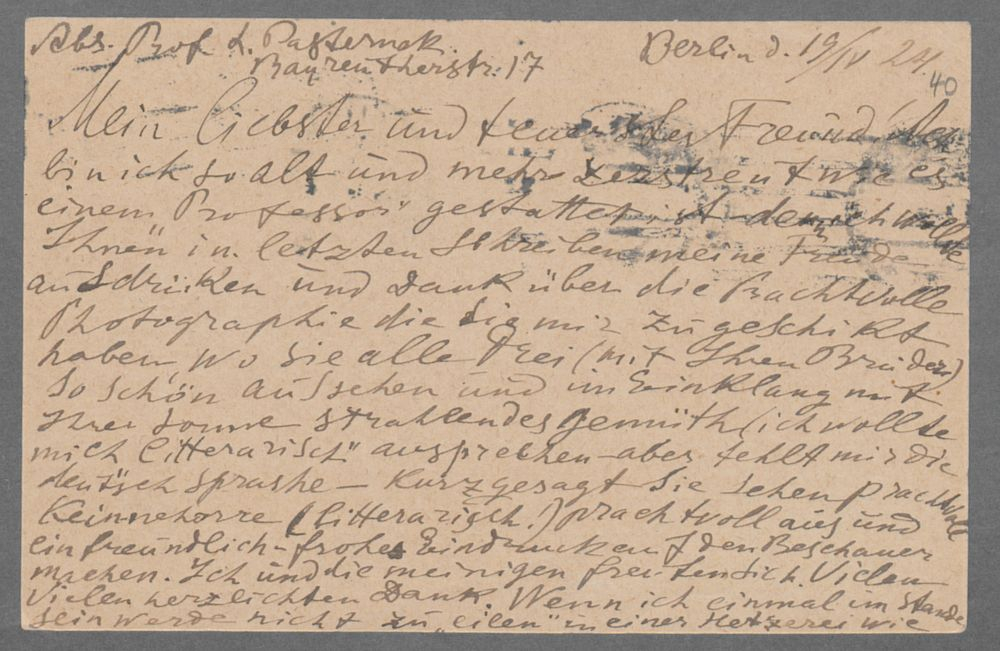 Abs. Prof. L. Pasternak
Bayreutherstr. 17
Berlin d. 19/IV 24.
40
Mein liebster und teuerster Freund!
bin ich so alt und mehr zerstreut wie es
einem Professor gestattet ist - ich wollte
Ihnen in letzten Schreiben meine Freude
ausdrüken und Dank über die Prachtvolle
Photographie die Sie mir zugeschikt
haben, wo Sie alle Drei (mit Ihren Brüder)
so schön aussehen und im Einklang mit
Ihrer Sonne strahlendes Gemüth (ich wollte
mich "litterarisch" aussprechen - aber fehlt mir die
deutsch sprashe - Kurz gesagt Sie sehen prachtvoll
(litterarisch.) prachtvoll aus und
ein freundlich-frohes Eindruck auf den Beschauer
machen. Ich und die meinigen freuten sich. Vielen
Vielen herzlichten Dank. Wenn ich einmal im stande
sein werde nicht zu "eilen" in einer Hetzerei wie